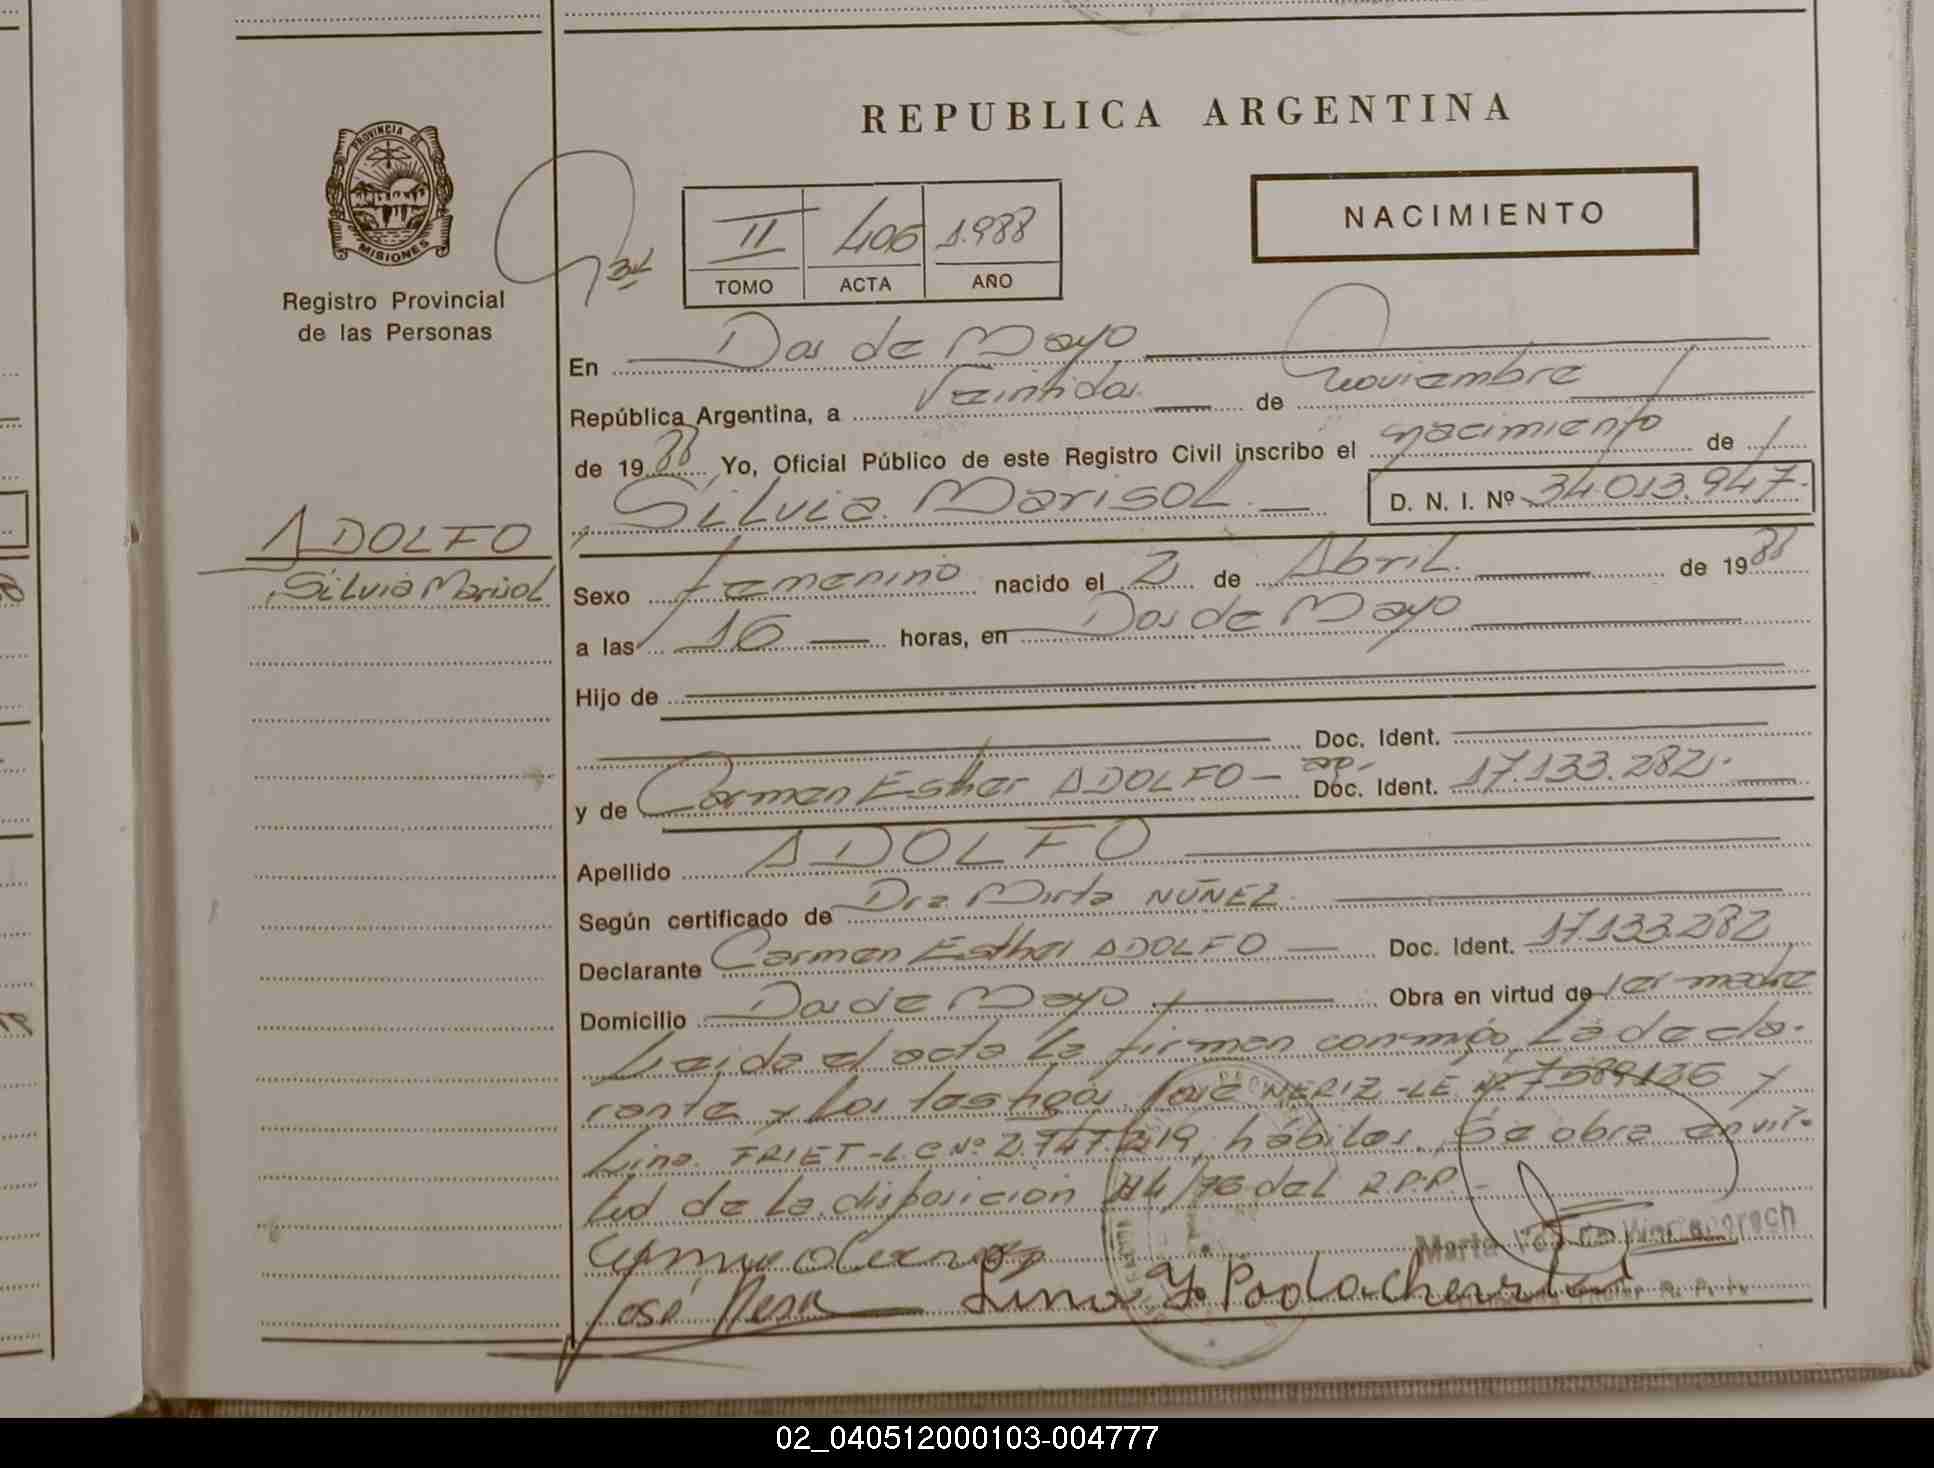 REPUBLICA ARGENTINA
PROVINCIA DE
MISIONES
Registro Provincial
de las Personas
NACIMIENTO
II 406 1.988
TOMO ACTA AÑO
En Dos de Mayo
República Argentina, a Veintidos de noviembre
de 1988 Yo, Oficial Público de este Registro Civil inscribo el nacimiento de
Silvia Marisol D. N. I. Nº 34 013.947.
ADOLFO
Silvia Marisol
Sexo femenino nacido el 2 de Abril de 1988
a las 16 horas, en Dos de Mayo
Hijo de
Doc. Ident.
y de Carmen Esther ADOLFO Doc. Ident. 17.133.282.
Apellido ADOLFO
Según certificado de Dra Mirta NÚÑEZ.
Declarante Carmen Esther ADOLFO Doc. Ident. 17.133.282
Domicilio Dos de Mayo Obra en virtud de ser madre
Leida el acta la firman conmigo, La decla-
rante y los testigos José NERIZ-LE Nº 7589136 y
Lino FRIET-L.C Nº 2.747.219, hábiles. Se obra en vir-
tud de la disposicion 24/76 del R.P.P.-
José
Marta
Lino
02_040512000103-004777